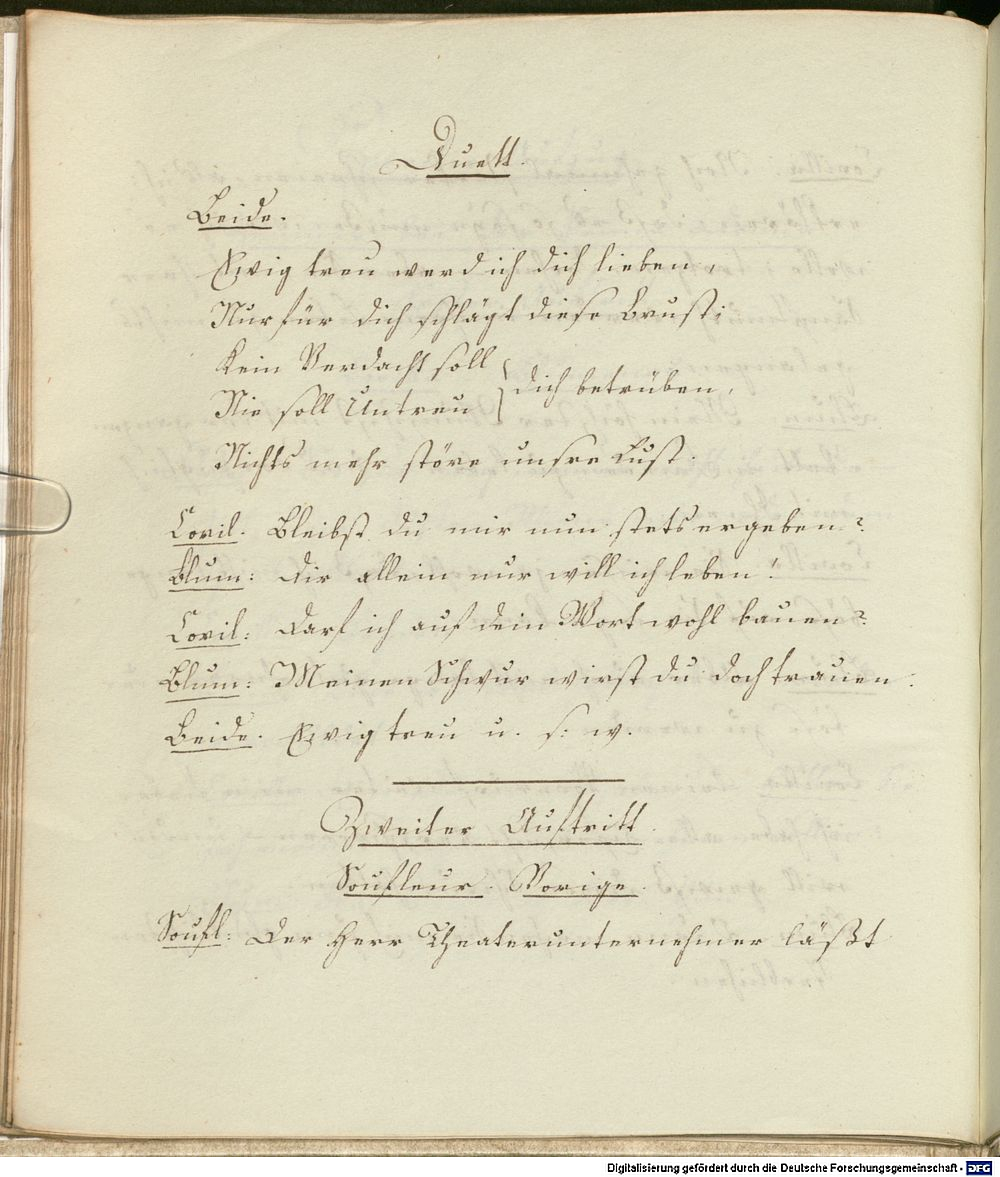 Duett.
Beide.
Ewig treu werd ich dich lieben,
Nur für dich schlägt diese Brust;
Kein Verdacht soll
Nie soll Untreu } dich betrüben,
Nichts mehr störe unsre Lust.
Covil. Bleibst du mir nun stets ergeben?
Blum: Dir allein nur will ich leben!
Covil: Darf ich auf dein Wort wohl bauen?
Blum: Meinen Schwur wirst du doch trauen.
Beide. Ewig treu u. s. w.
Zweiter Auftritt.
Soufleur. Vorige.
Soufl: Der Herr Theaterunternehmer läßt
Digitalisierung gefördert durch die Deutsche Forschungsgemeinschaft - DFG